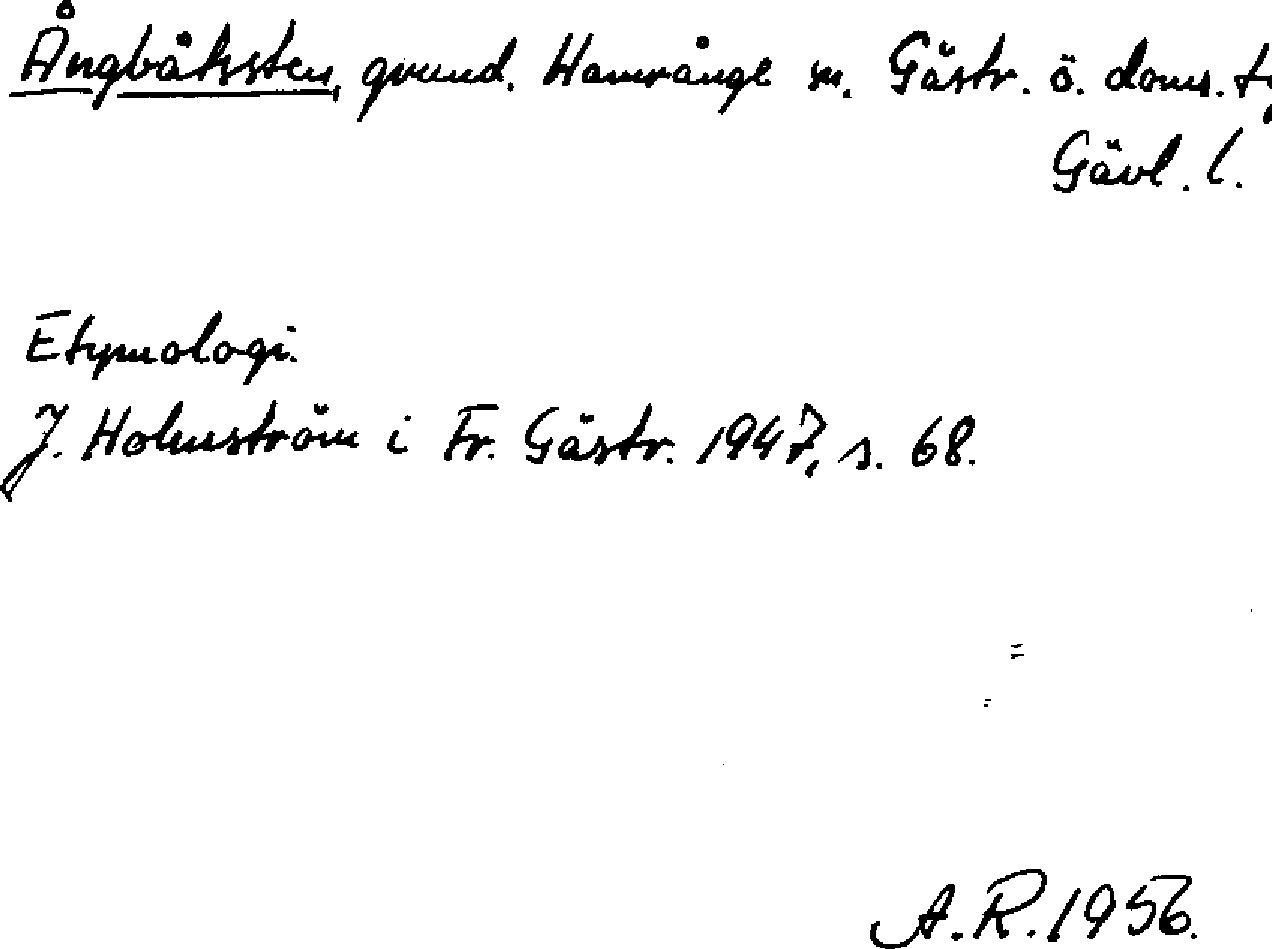 Ångbåtssten, grund. Hamrånge sn. Gästr. ö. doms.
Gävl. l.
Etymologi.
J. Holmström i Fr. Gästr. 1947, s. 68.
A.R. 1956.